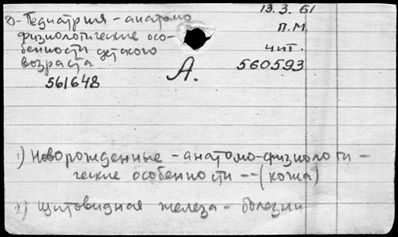 Педиатрия - анатомо
физиологические осо-
бенности детского
возраста
561648
A.
13.3.61
П.М.
чит.
560593
1) Новорожденные - анатомо-физиологи-
ческие особенности -- (кожа)
2) щитовидная железа - болезни